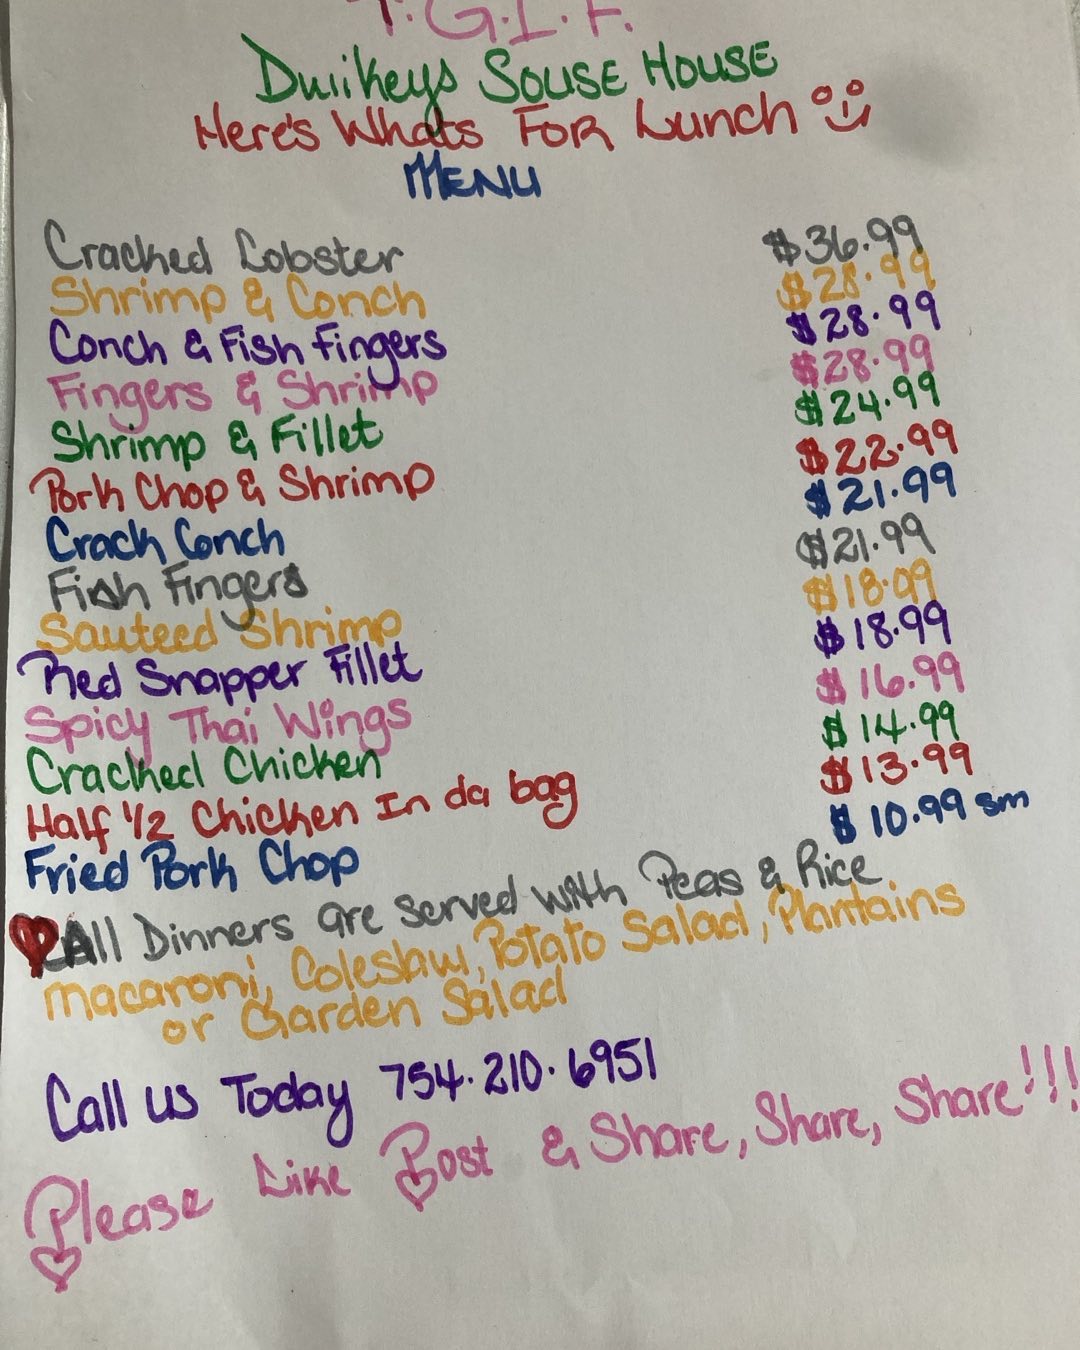 T.G.I.F.
Dwikeys Souse House
Here's Whats For Lunch
Menu
Cracked Lobster $36.99
Shrimp & Conch $28.99
Conch & Fish fingers $28.99
Fingers & Shrimp $28.99
Shrimp & Fillet $24.99
Pork Chop & Shrimp $22.99
Crack Conch $21.99
Fish Fingers $21.99
Sauteed Shrimp $18.09
Red Snapper Fillet $18.99
Spicy Thai Wings $16.99
Cracked Chicken $14.99
Half 1/2 Chicken In da bag $13.99
Fried Pork Chop $10.99 sm
All Dinners are served with Peas & Rice
Macaroni, Coleslaw, Potato Salad, Plantains
or Garden Salad
Call us Today 754.210.6951
Please Like Post & Share, Share, Share!!!